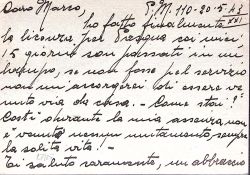 Caro Marco, P.M. 110-20-5-43
XXI
ho fatto finalmente
la licenza per Pasqua coi miei
15 giorni son passati in un
lampo, se non fosse pel servizio
non mi accorgerei di essere ve
nuto via da casa. - Come stai?!
Costì durante la mia assenza, non
è venuto nessun mutamento, sempre
la solita vita! -
Ti saluto caramente, un abbraccio